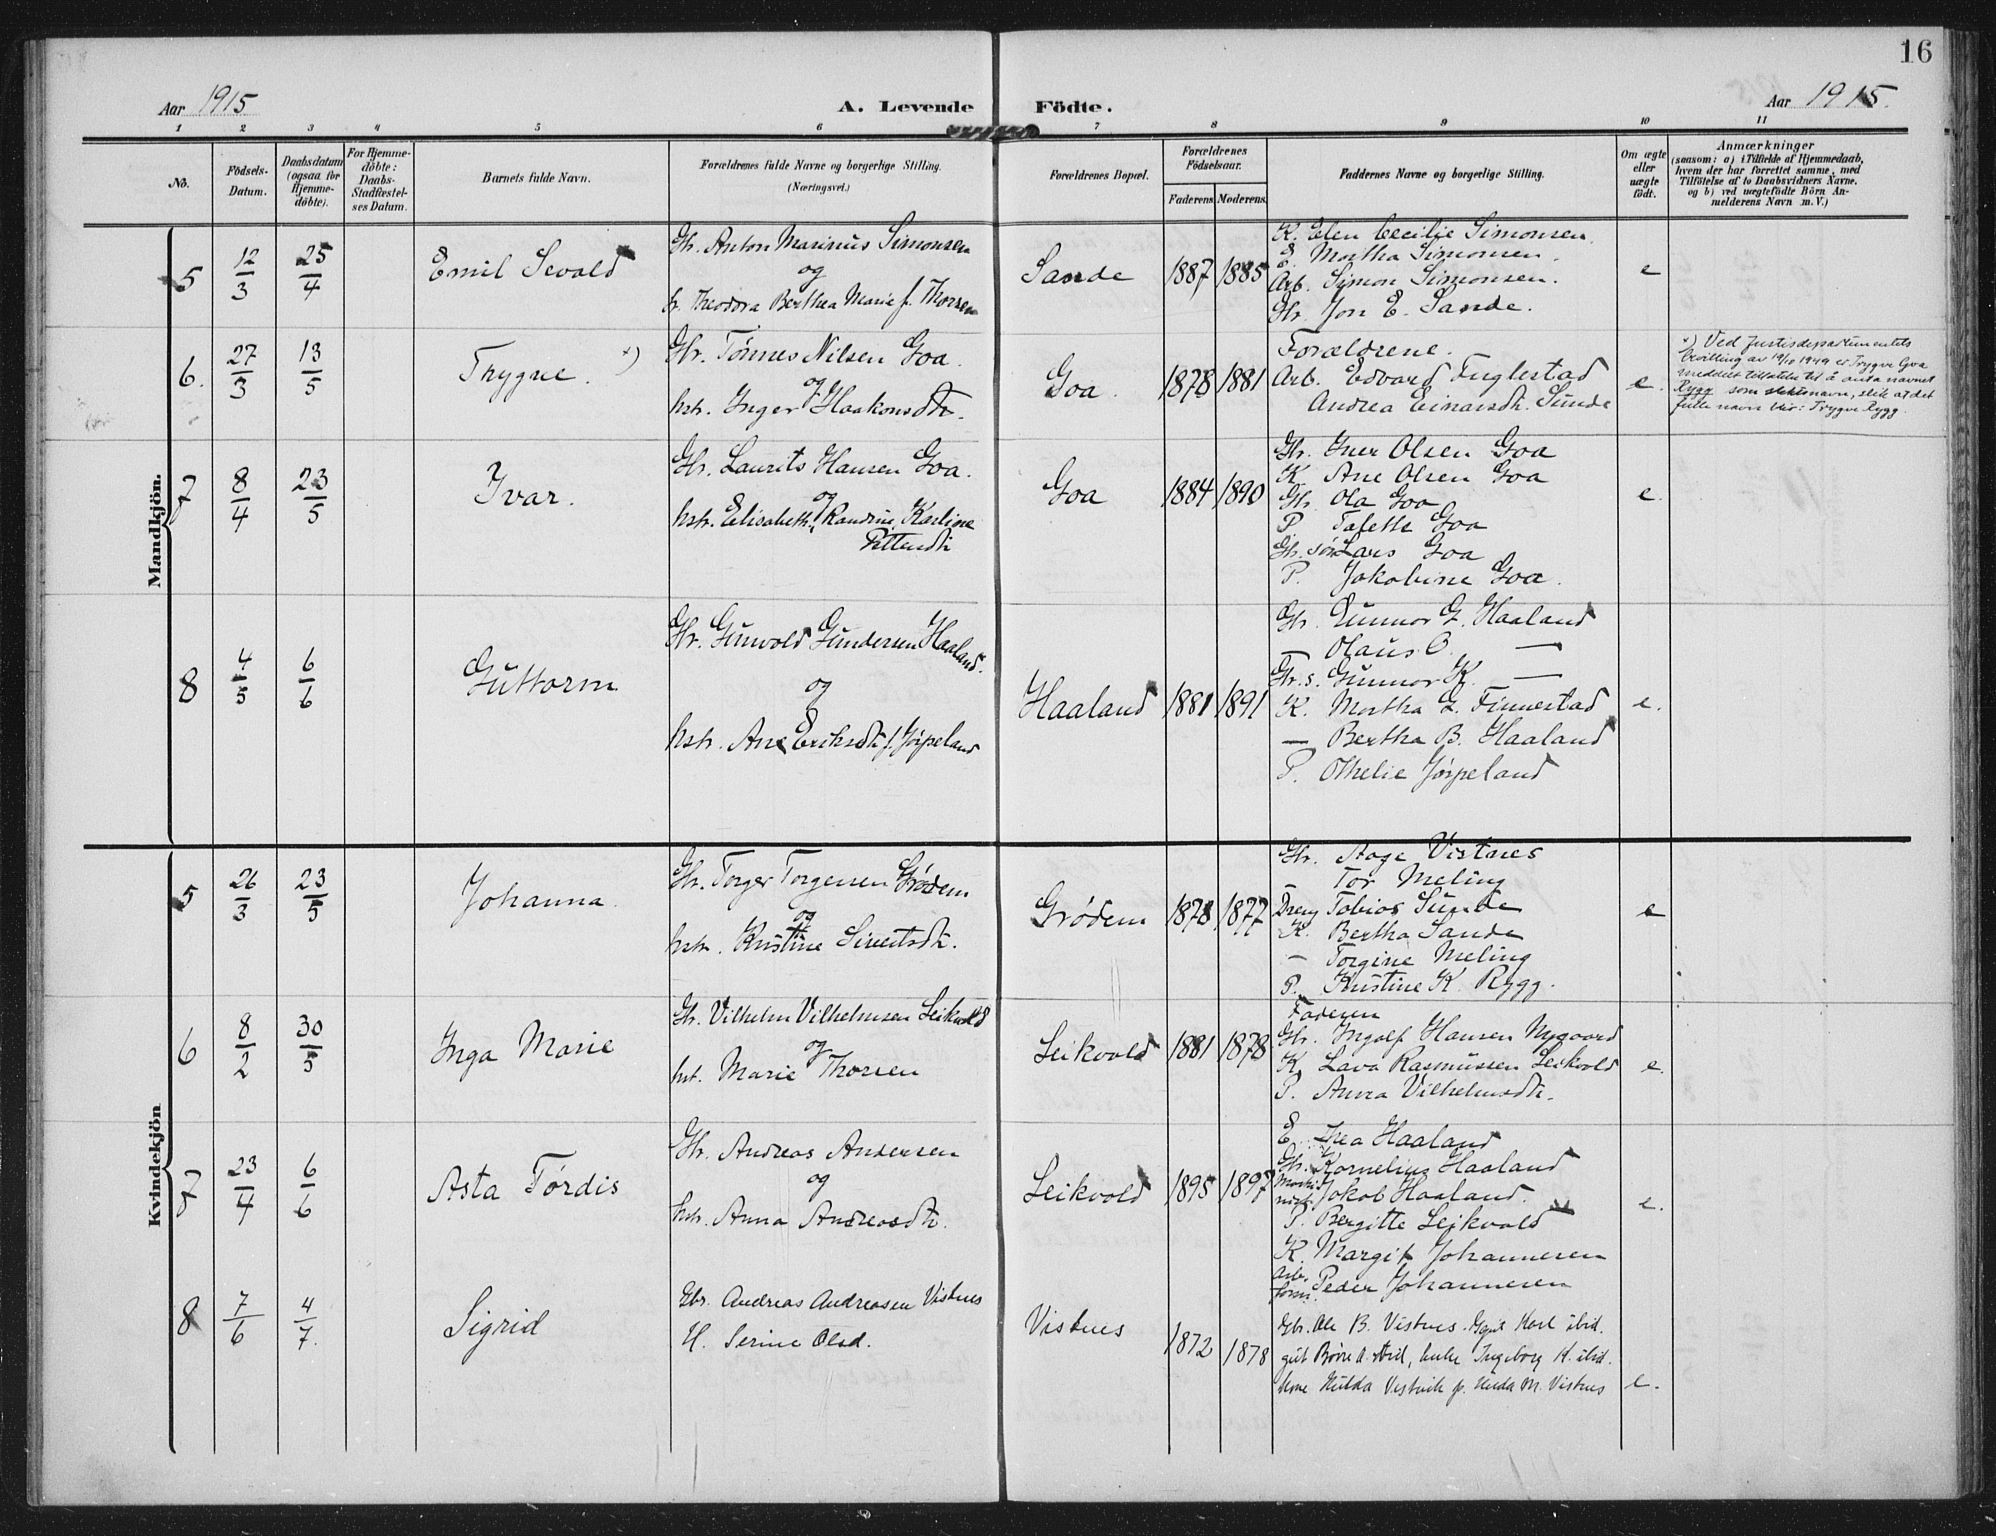 16
Aar 1915
A. Levende Födte.
Aar 1915.
1 2 3 4 5 6 7 8 9 10 11
No.
Födsels-
Datum.
Daabsdatum
(ogsaa for
Hjemme-
döbte).
For Hjemme-
döbte:
Daabs-
Stadfæstel-
ses Datum.
Barnets fulde Navn.
Forældrenes fulde Navne og borgerlige Stilling.
(Næringsvei.)
Forældrenes Bopæl.
Forældrenes
Födselsaar.
Faderens. Moderens.
Faddernes Navne og borgerlige Stilling.
Om ægte
eller
uægte
födt.
Anmærkninger
(saasom: a) i Tilfælde af Hjemmedaab,
hvem der har forrettet samme, med
Tilföielse af to Daabsvidners Navne,
og b) ved uægtefödte Börn An-
melderens Navn m. V.)
Mandkjön.
5
12/3
25/4
Emil Sevald
Gbr. Anton Marinius Simonsen
og
h. Theodora Berthea Marie f. Thorsen
Sande
1887
1885
K. Elen Cecilie Simonsen.
E. Martha Simonsen.
Arb. Simon Simonsen.
Gbr. Jon E. Sande.
e
6.
27/3
13/5
Thygve. x)
Gbr. Tönnes Nilsen Goa.
og
hstr. Inger Haakonsdtr.
Goa.
1878
1881
Forældrene.
Arb. Edvard Fuglestad
Andrea Einarsdtr. Sunde
e.
x) Ved Justisdepartementets
bevilling av 19/10 1949 er Trygve Goa
meddelt tillatelse til å anta navnet
Rygg som slektsnavn, slik at det
fulle navn blir: Trygve Rygg.
7
8/4
23/5
Ivar.
Gbr. Laurits Hansen Goa.
og
hstr. Elisabeth, Randine, Karline
Pettersdtr
Goa
1884
1890
Gbr. Iver Olsen Goa
K. Ane Olsen Goa
Gbr. Ola Goa
P. Tafette Goa
Gbr. søn Lars Goa
P. Jakobine Goa.
e.
8
4/5
6/6
Guttorm
Gbr. Gunvald Gundersen Haaland.
og
hstr. Ane Eriksdtr f. Jørpeland
Haaland
1881
1891
Gbr. Gunnar G. Haaland
— Olaus O. —
Gbr. s. Gunnar K. —
K. Martha G. Finnestad
— Bertha B. Haaland
P. Othelie Jørpeland
e.
Kvindekjön
5
26/3
23/5
Johanna.
Gbr. Torger Torgersen Grödem
og
hstr. Kristine Sivertsdtr.
Grödem
1878
1877
Gbr. Aage Vistnes
— Tor Meling
Dreng Tobias Sunde
K. Bertha Sande
— Torgine Meling
P. Kristine K. Rygg.
e
6
8/2
30/5
Inga Marie
Gbr. Vilhelm Vilhelmsen Leikvold
og
hst. Marie Thorsen
Leikvold
1881
1878
Faderen
Gbr. Ingolf Hansen Nygaard
K. Lava Rasmussen Leikvold
P. Anna Vilhelmsdtr.
e.
7
23/4
6/6
Asta Tørdis
Gbr. Andreas Andersen
og
hstr. Anna Andreasdtr.
Leikvold
1895
1897
E. Thea Haaland
Gbr. Kornelius Haaland
Jakob Haaland.
P. Bergitte Leikvold
K. Margit Johannesen
Arb. form. Peder Johannesen
e.
8
7/6
4/7.
Sigrid
Gbr. Andreas Andreasen Vistnes
H. Serine Olsd.
Vistnes
1872
1878
Gbr. Ole B. Vistnes. Karl ibid.
gut Børre A. ibid, Ingeborg K. ibid.
Hulda Vestvik p. Hulda M. Vistnes
e.